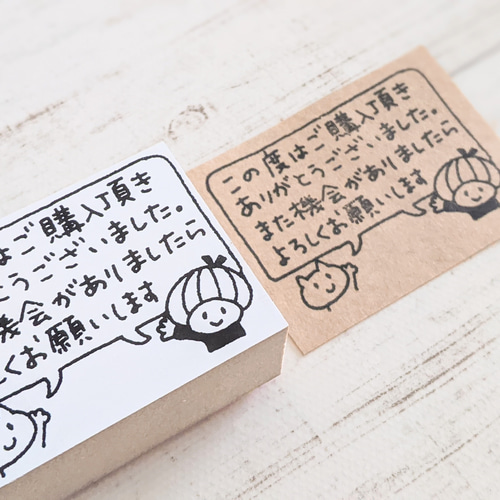 はご購入頂き
とうございました。
機会がありましたら
しくお願いします
この度はご購入頂き
ありがとうございました。
また機会がありましたら
よろしくお願いします